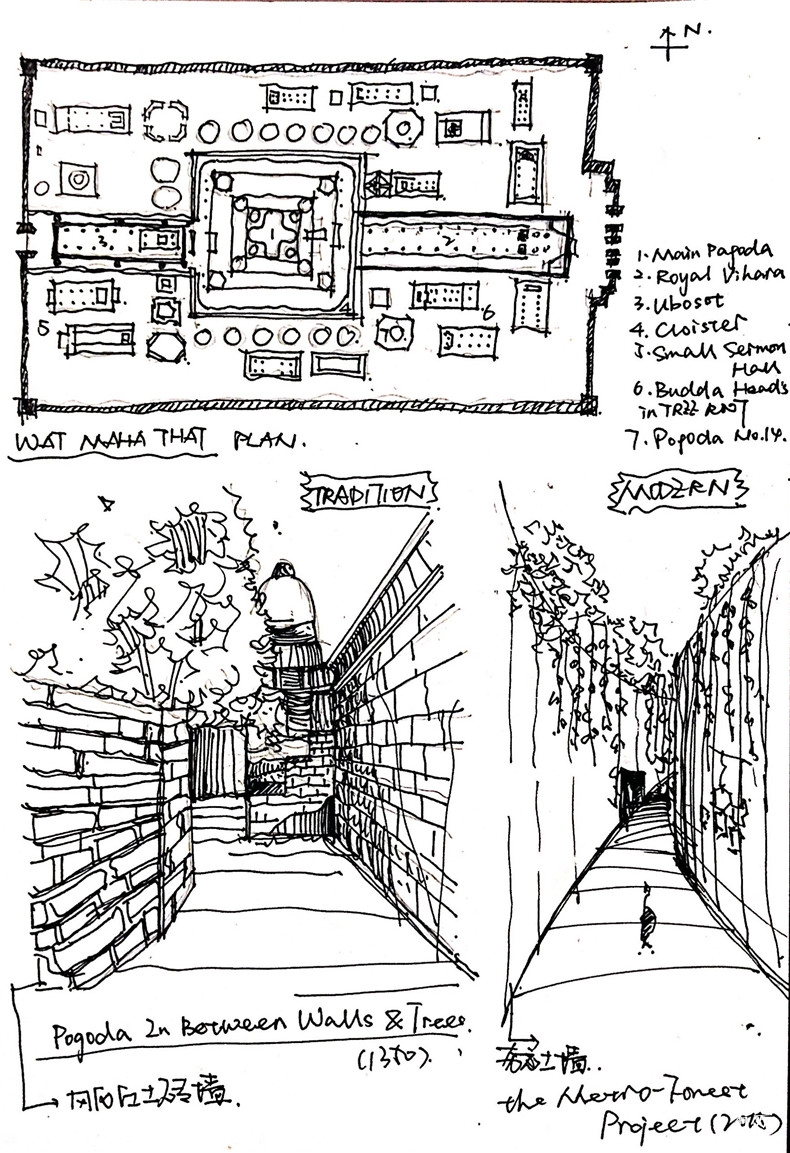 N.
1. Main Pagoda
2. Royal Vihara
3. Uboset
4. Cloister
5. Small Sermon
Hall
6. Budda Head's
in TREE ROOT
7. Pogoda No.14.
1
2
3
5
6
7
WAT MAHA THAT PLAN.
TRADITION
MODERN
Pogoda In Between Walls & Trees.
(1370).
土砖墙.
夯土墙..
the Metro-Forest
Project (2015)